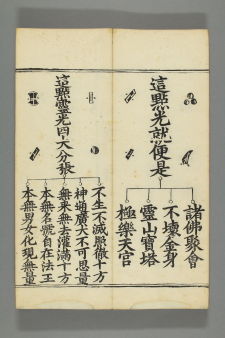 這點光就便是
諸佛聚會
不壞金身
靈山寶塔
極樂天宮
這點靈光四大分張
不生不滅照徹十方
神通廣大不可思量
無來無去灌滿十方
本無名號自在法王
本無男女化現無量